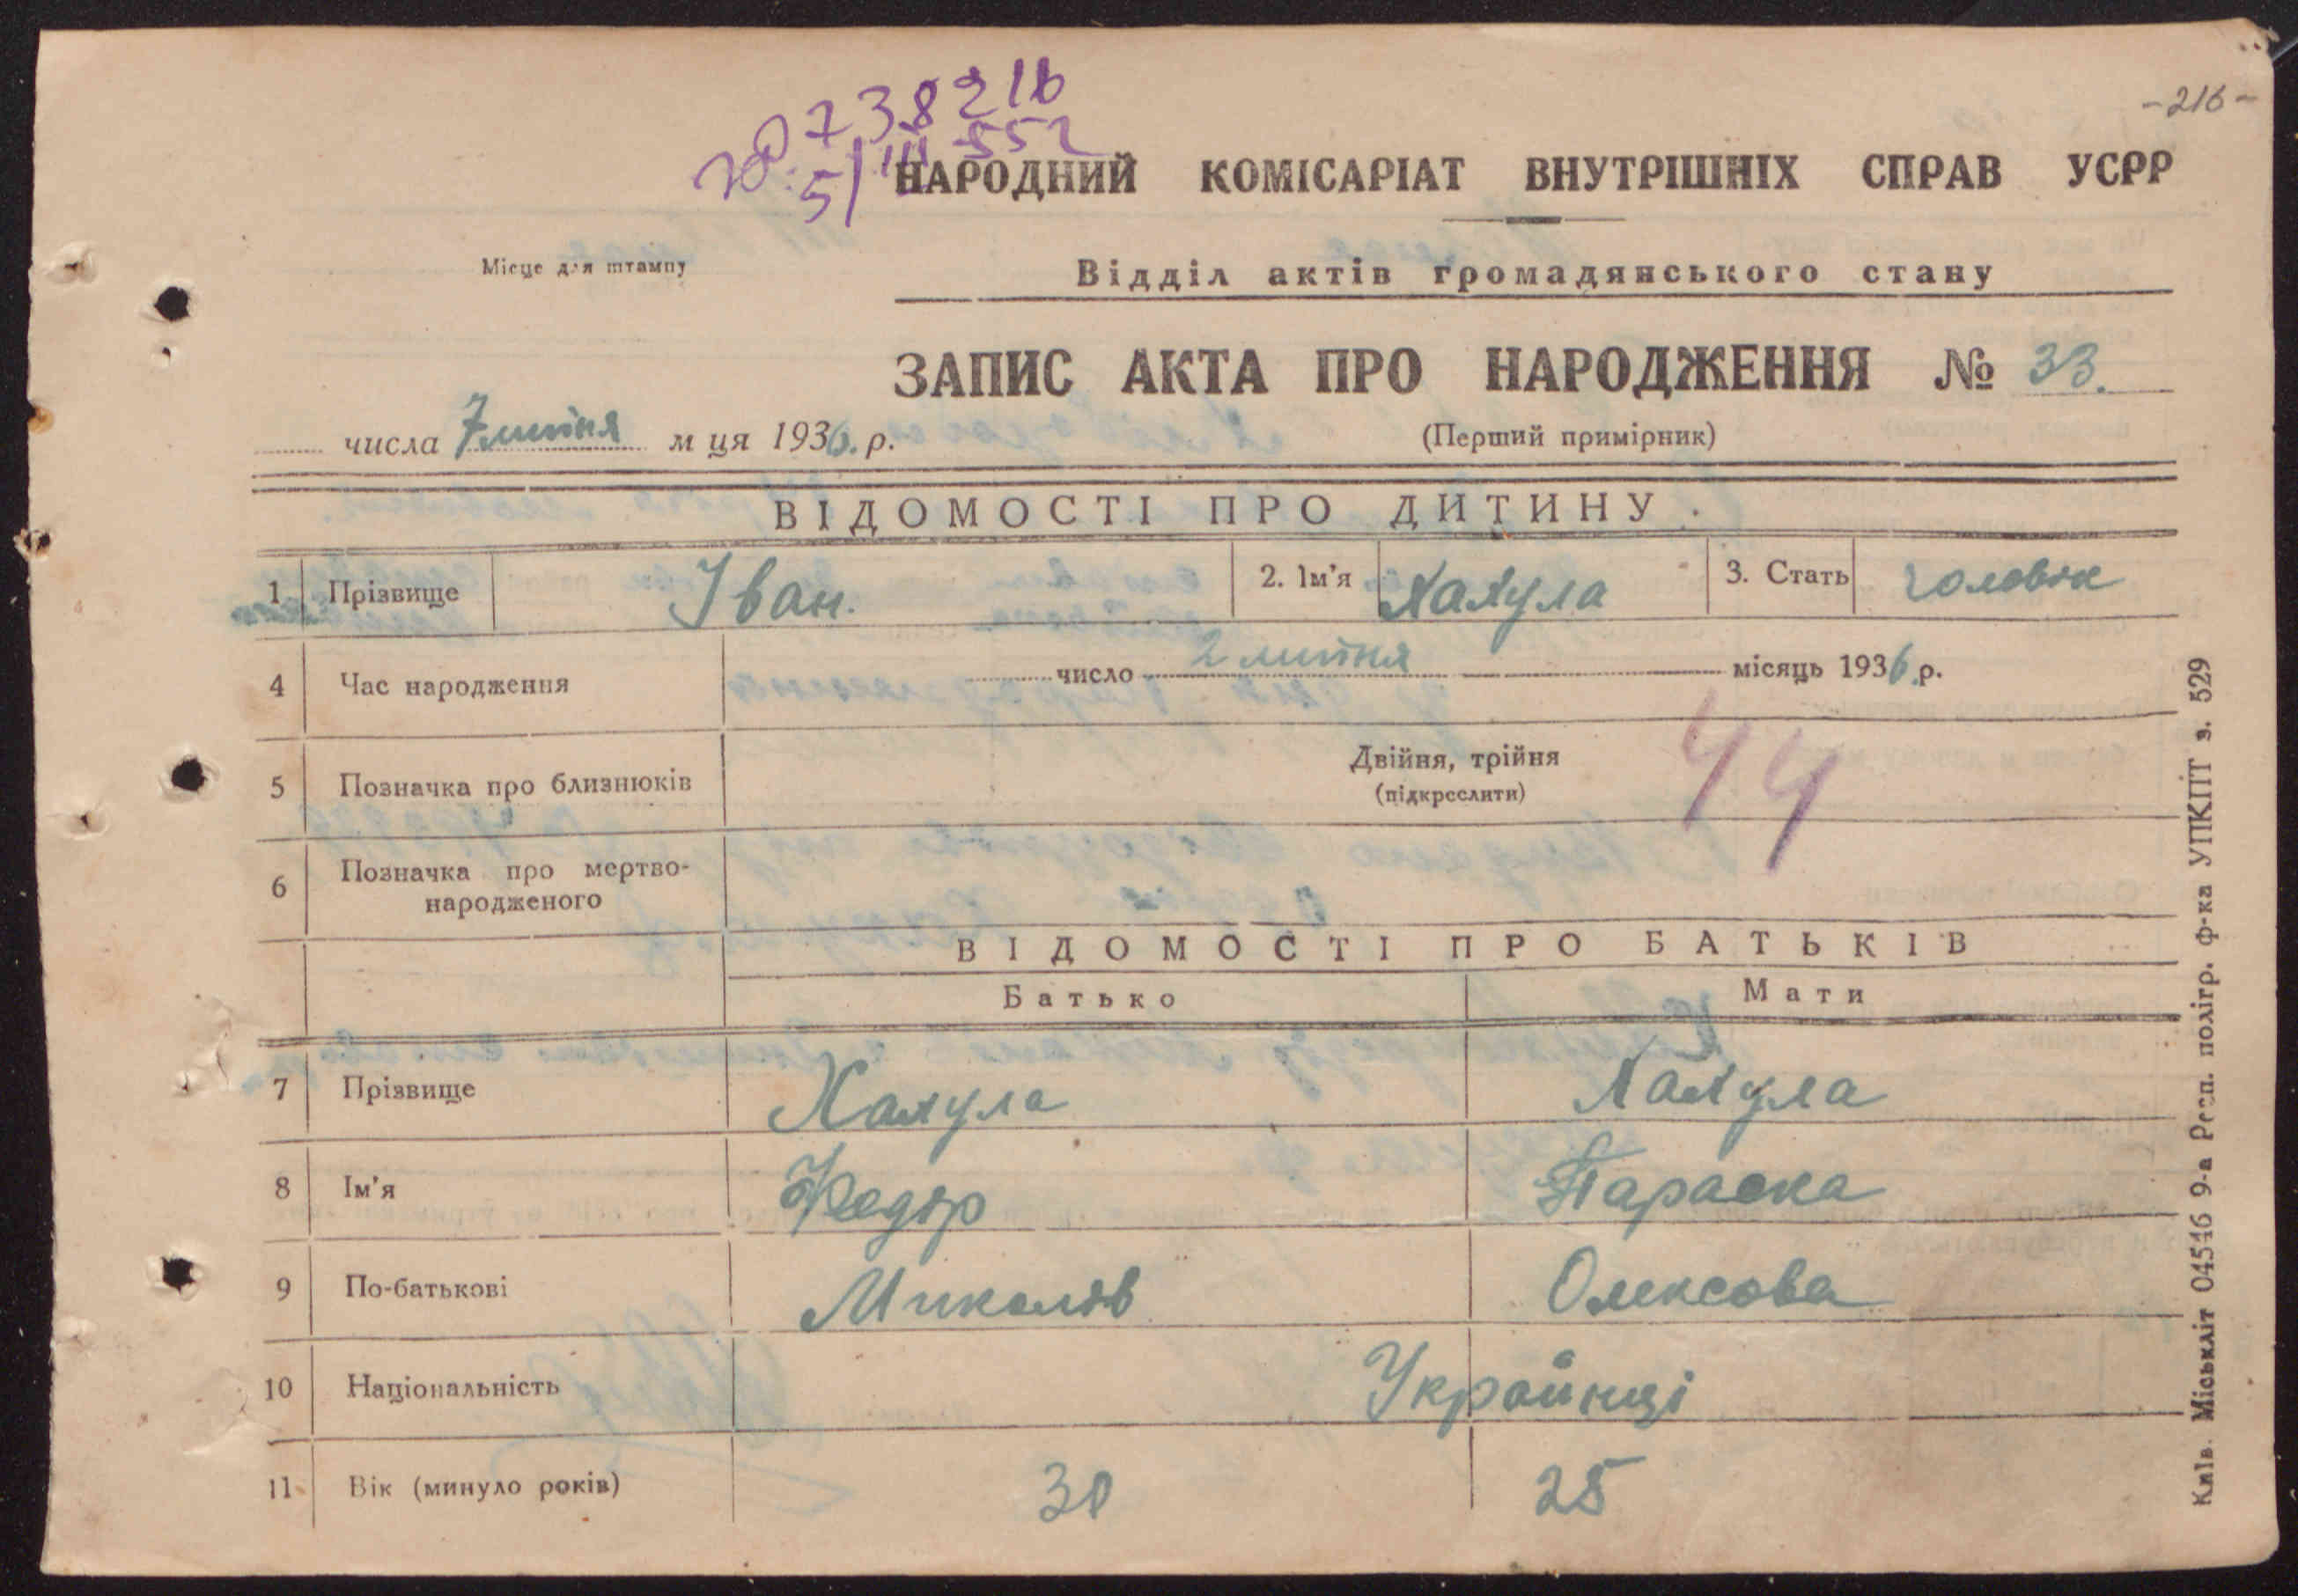 738216
5/III-55г
-216-
НАРОДНИЙ КОМІСАРІАТ ВНУТРІШНІХ СПРАВ УСРР
Місце для штампу
Відділ актів громадянського стану
ЗАПИС АКТА ПРО НАРОДЖЕННЯ № 33.
числа 7 липня м ця 1936. р.
(Перший примірник)
ВІДОМОСТІ ПРО ДИТИНУ.
1 Прізвище Іван. 2. Ім'я Халула 3. Стать чоловік
4 Час народження число 2 липня місяць 1936.р.
5 Позначка про близнюків Двійня, трійня
(підкреслити)
44
6 Позначка про мертво-
народженого
ВІДОМОСТІ ПРО БАТЬКІВ
Батько Мати
7 Прізвище Халула Халула
8 Ім'я Федір Параска
9 По-батькові Миколів Олексова
10 Національність Українці
11 Вік (минуло років) 30 25
Київ. Міськліт 04546 9-а Респ. полігр. ф-ка УПКПТ з. 529